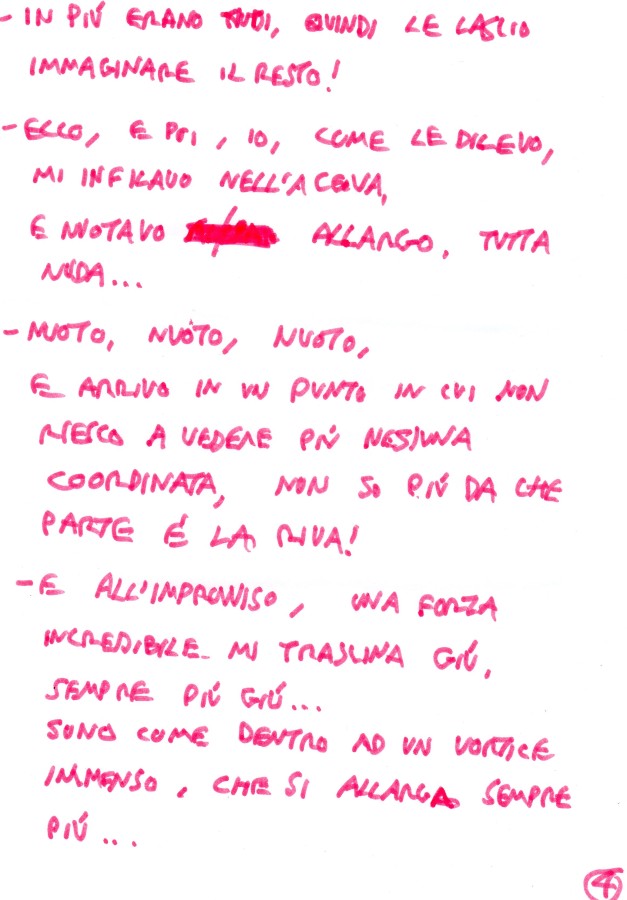 - IN PIÚ ERANO NUDI, QUINDI LE LASCIO
IMMAGINARE IL RESTO!
- ECCO, E POI, IO, COME LE DICEVO,
MI INFILAVO NELL'ACQUA,
E NUOTAVO ALLARGO, TUTTA
NUDA...
- NUOTO, NUOTO, NUOTO,
E ARRIVO IN UN PUNTO IN CUI NON
RIESCO A VEDERE PIÚ NESSUNA
COORDINATA, NON SO PIÚ DA CHE
PARTE É LA RIVA!
- E ALL'IMPROVVISO, UNA FORZA
INCREDIBILE MI TRASCINA GIÚ,
SEMPRE PIÚ GIÚ...
SONO COME DENTRO AD UN VORTICE
IMMENSO, CHE SI ALLARGA SEMPRE
PIÚ...
4